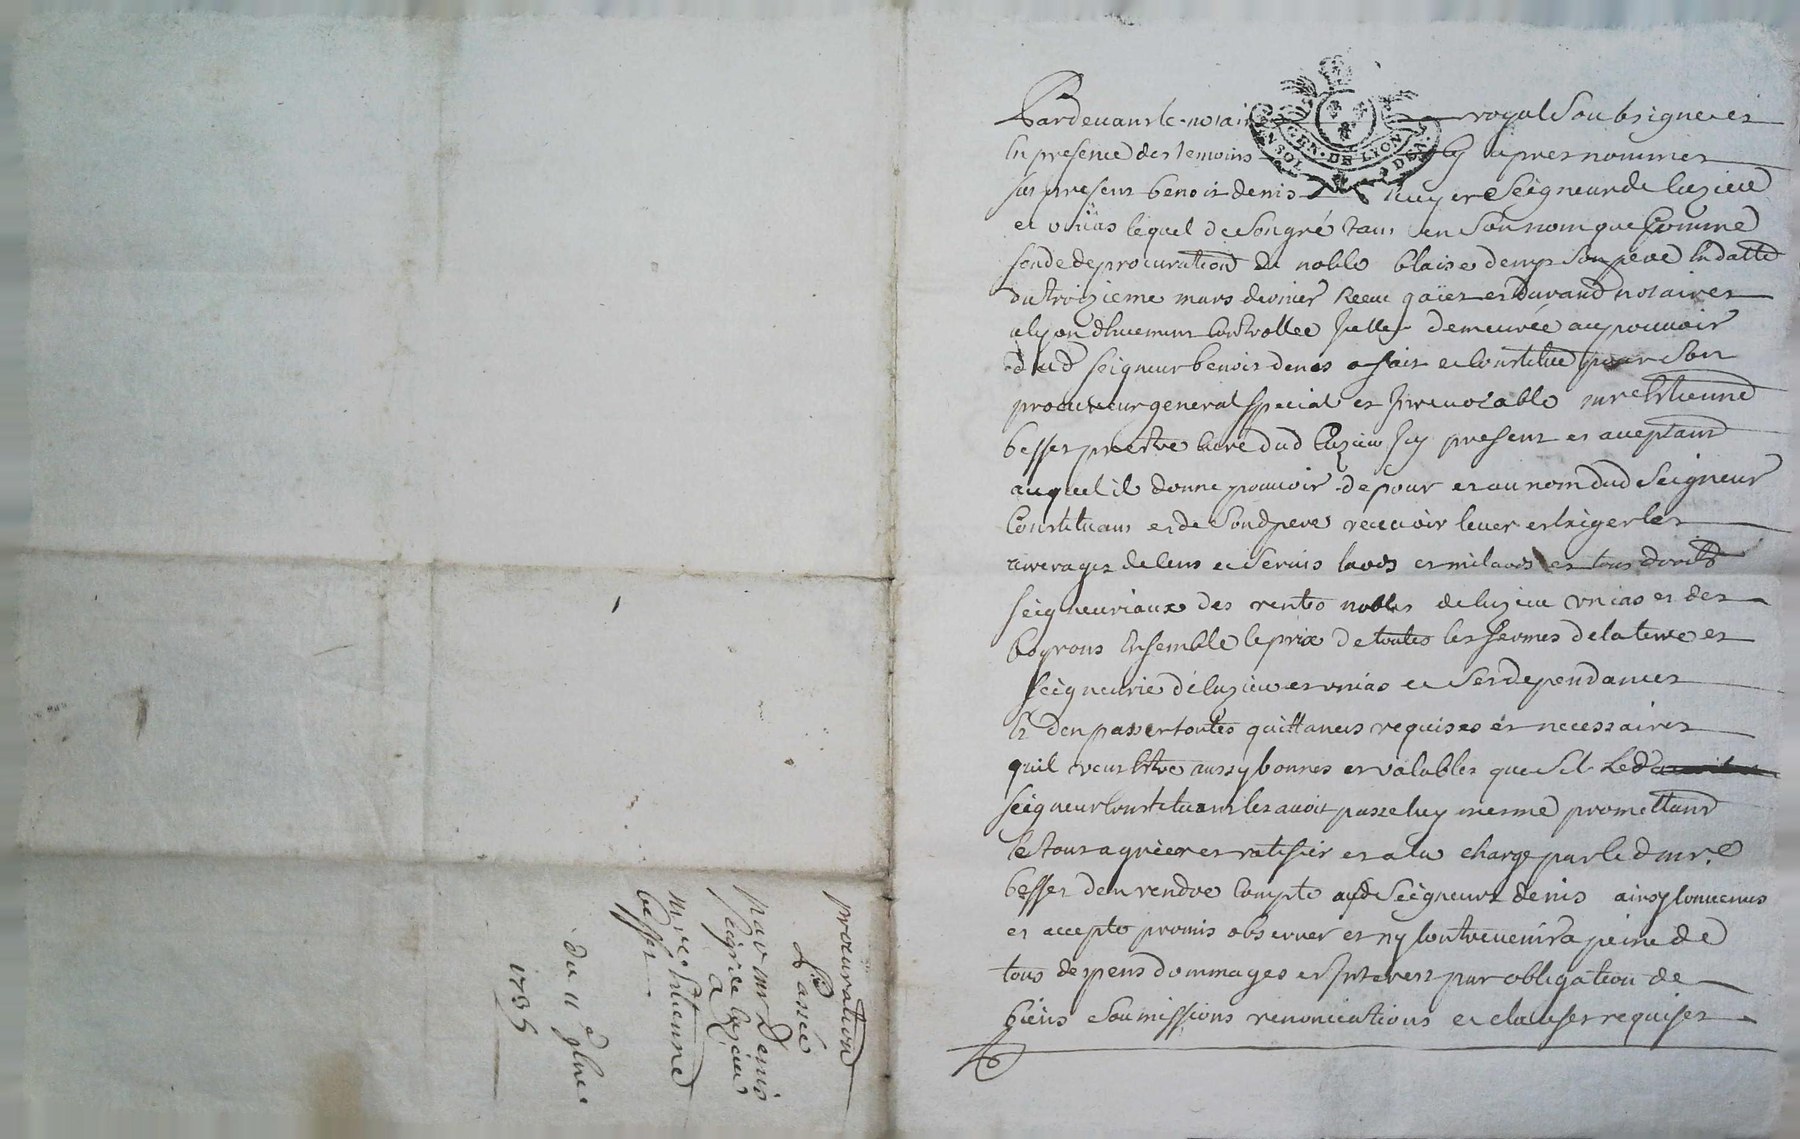 Pardevant le notaire royal Soubsigne et
En presence des temoins cy apres nommes
fut present benoit denis Ecuyer Seigneur de Cuzieu
et Unias lequel de Son gré tant en Son nom que Comme
fondé de procuration de noble blaise denys Son pere En datte
du troizieme mars dernier Receu gaïet et Durand notaires
a lyon dhuement Controllee Jcelle demeurée au pouvoir
dud seigneur benoit denis a fait et Constitué pour Son
procureur general Special et Jrrevocable mre Estienne
besset prestre curé dud Cuzieu Jcy present et aceptant
auquel il donne pouvoir de pour et au nom dud Seigneur
Constituant et de Sond pere recevoir lever et Exiger les
arrerages de cens et Servis laods et milaods et tous droits
seigneuriaux des rentes nobles de Cuzieu Unias et des
boyrons Ensemble le prix de toutes les fermes de la terre et
Seigneurie de Cuzieu et unias et Ses dependances
Et den passer toutes quittances requises et necessaires
quil veut Estre aussy bonnes et valables que Si Led
seigneur Constituant les avoit passe luy mesme promettant
le tout agréer et ratifier et a la charge par le d mre
besset den rendre Compte ausd Seigneurs denis ainsy Convenus
et accepte promis observer et ny Contrevenir a peine de
tous despens dommages et Jnterest par obligation de
biens Soumissions renonciations et clauses requises
GEN. DE LYON
procuration
Passée
par mr Denis
seigr de Cuzieu
a
mre Estienne
besset
du 11e 9bre
1735